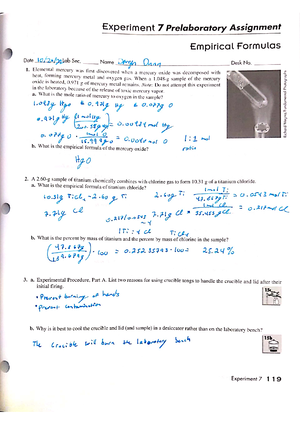 Experiment 7 Prelaboratory Assignment
Empirical Formulas
Date Lab Sec. Name Desk No.
1. Elemental mercury was first discovered when a mercury oxide was decomposed with
heat, forming mercury metal and oxygen gas. When a 1.048-g sample of the mercury
oxide is heated, 0.971 g of mercury metal remains. (Note: Do not attempt this experiment
in the laboratory because of the release of toxic mercury vapor.
a. What is the mole ratio of mercury to oxygen in the sample?
1:1 mol
ratio
b. What is the empirical formula of the mercury oxide?
HgO
2. A 2.60-g sample of titanium chemically combines with chlorine gas to form 10.31 g of a titanium chloride.
a. What is the empirical formula of titanium chloride?
10.31g TiCl4 - 2.60g Ti
7.71g Cl
1Ti : 4 Cl TiCl4
b. What is the percent by mass of titanium and the percent by mass of chlorine in the sample?
· 100 = 0.2523 · 100 = 25.24 %
3. a. Experimental Procedure, Part A. List two reasons for using crucible tongs to handle the crucible and lid after their
initial firing.
• Prevent burning of hands
• Prevent contamination
b. Why is it best to cool the crucible and lid (and sample) in a desiccator rather than on the laboratory bench?
The crucible will burn the laboratory bench
Experiment 7 119